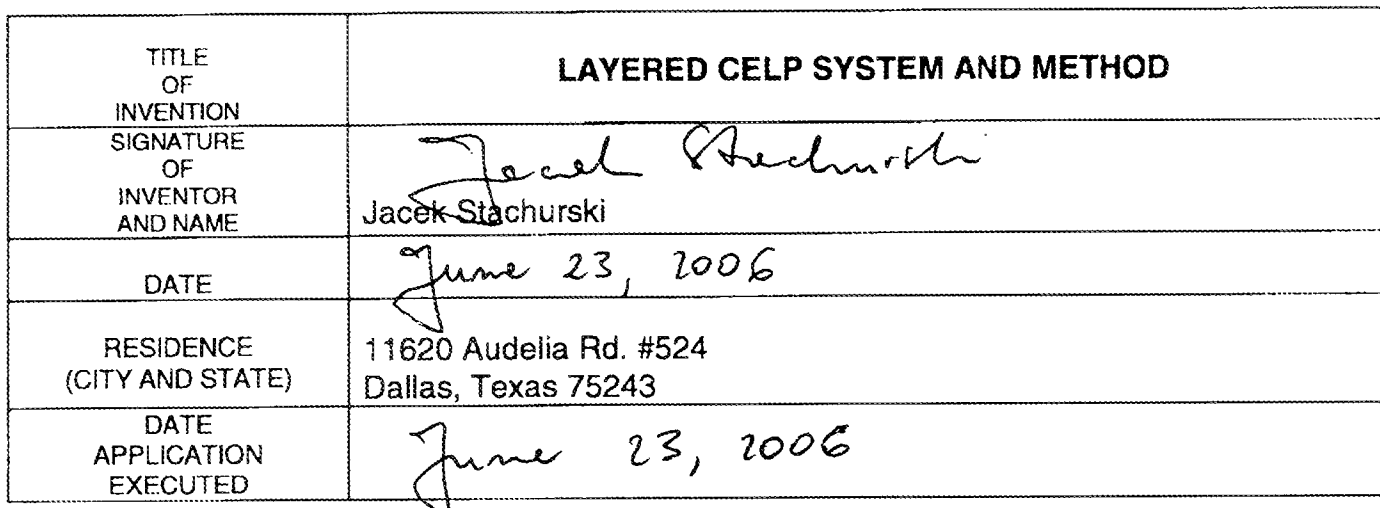 TITLE
OF
INVENTION
LAYERED CELP SYSTEM AND METHOD
SIGNATURE
OF
INVENTOR
AND NAME
Jacek Stachurski
Jacek Stachurski
DATE
June 23, 2006
RESIDENCE
(CITY AND STATE)
11620 Audelia Rd. #524
Dallas, Texas 75243
DATE
APPLICATION
EXECUTED
June 23, 2006